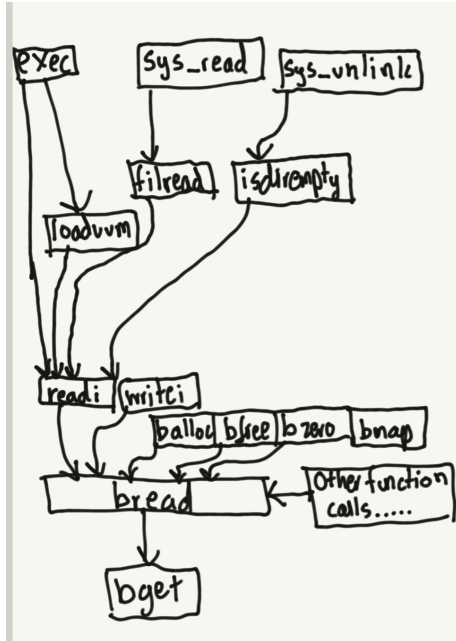 exec
sys_read
sys_unlink
filread
isdirempty
loaduvm
readi
writei
balloc
bfree
bzero
bmap
bread
Other function
calls.....
bget